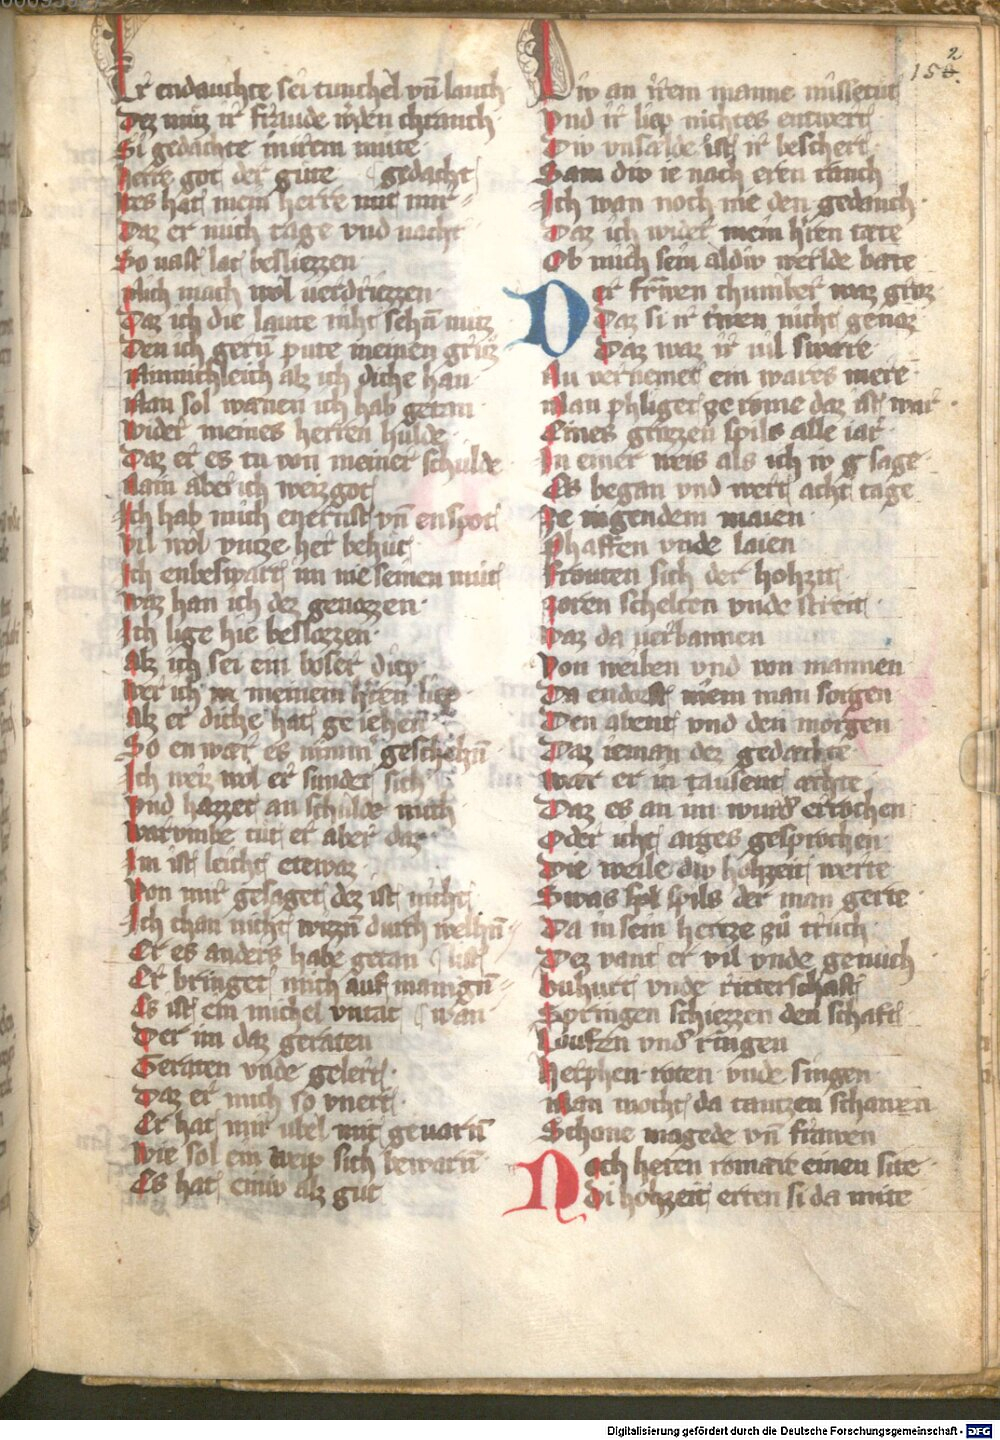 152.
Ir endauchte sei tunchel vn̄ lanch
Dez muͤz ir fraude werden chranch
Si gedachte in irem muͤte
herre got der gute gedacht
wes hat mein herre mit mir
Daz er mich tage vnd nacht
So vast lat besliezzen
Mich mach wol uerdriezzen
Daz ich die laute niht sehn̄ muͤz
Den ich gern̄ pute meinen gruͤz
Minnichleich alz ich diche han
Man sol wanen ich hab getan
wider meines herren hulde
Daz er es tu von meiner schulde
Nain aber ich weiz got
Ich hab mich en ernst vn̄ enspot
vil wol vntze her behut
Ich enbeswart im nie seinen mut
waz han ich dez genozzen
Ich lige hie beslozzen
Alz ich sei ein boser diep
wer ich meinem hren liep
Alz er diche hat geiehen
So en wær es nimmer geschehn̄
Ich weiz wol er sundet sich
vnd hazzet an schulde mich
warvmbe tut er aber daz
Im ist leicht etewaz
Von mir gesaget dez ist nicht
Ich chan nicht wizzn̄ durch welhn̄
Er es anders habe getan list
Er bringet mich auf manign̄
Es ist ein michel vntat wan
Der im daz geraten
Geraten vnde gelert
Daz er mich so vnert
Er hat mir ubel mit geuarn̄
wie sol ein weip sich bewarn̄
Es hat einiv alz gut
Div an irem manne missetut
Vnd ir liep nichtes entwert
Div vnsalde ist ir beschert
Sam div ie nach eren ranch
Ich wan noch nie den gedanch
Daz ich wider mein hren tæte
Ob mich sein aldiv werlde bæte
Der frawen chumber waz groz
Daz si ir trwen nicht genoz
Daz waz ir vil swære
Nu vernemet ein wares mere
Man phliget ze rome daz ist war
Eines grozzen spils alle iar
In einer weis als ich iv sage
Es began vnd wert acht tage
ze ingendem maien
phaffen vnde laien
frouten sich der hohzit
zoren schelten vnde streit
waz da uerbannen
Von weiben vnd von mannen
Da endorft niem man sorgen
Den abent vnd den morgen
Daz ieman dez gedachte
wær er in tausent æchte
Daz es an im wurd errochen
Oder icht arges gesprochen
Die weile div hohzeit werte
Swas spils der man gerte
Da in sein hertze zu truch
Dez vant er vil vnde genuch
buhurt vnde ritterschaft
Springen schiezzen den schaft
Louffen vnd ringen
herphen roten vnde singen
Man mocht da tantzen schawen
Schone magede vn̄ frawen
Nach heren romare einen site
di hohzeit erten si da mite
Digitalisierung gefördert durch die Deutsche Forschungsgemeinschaft - DFG